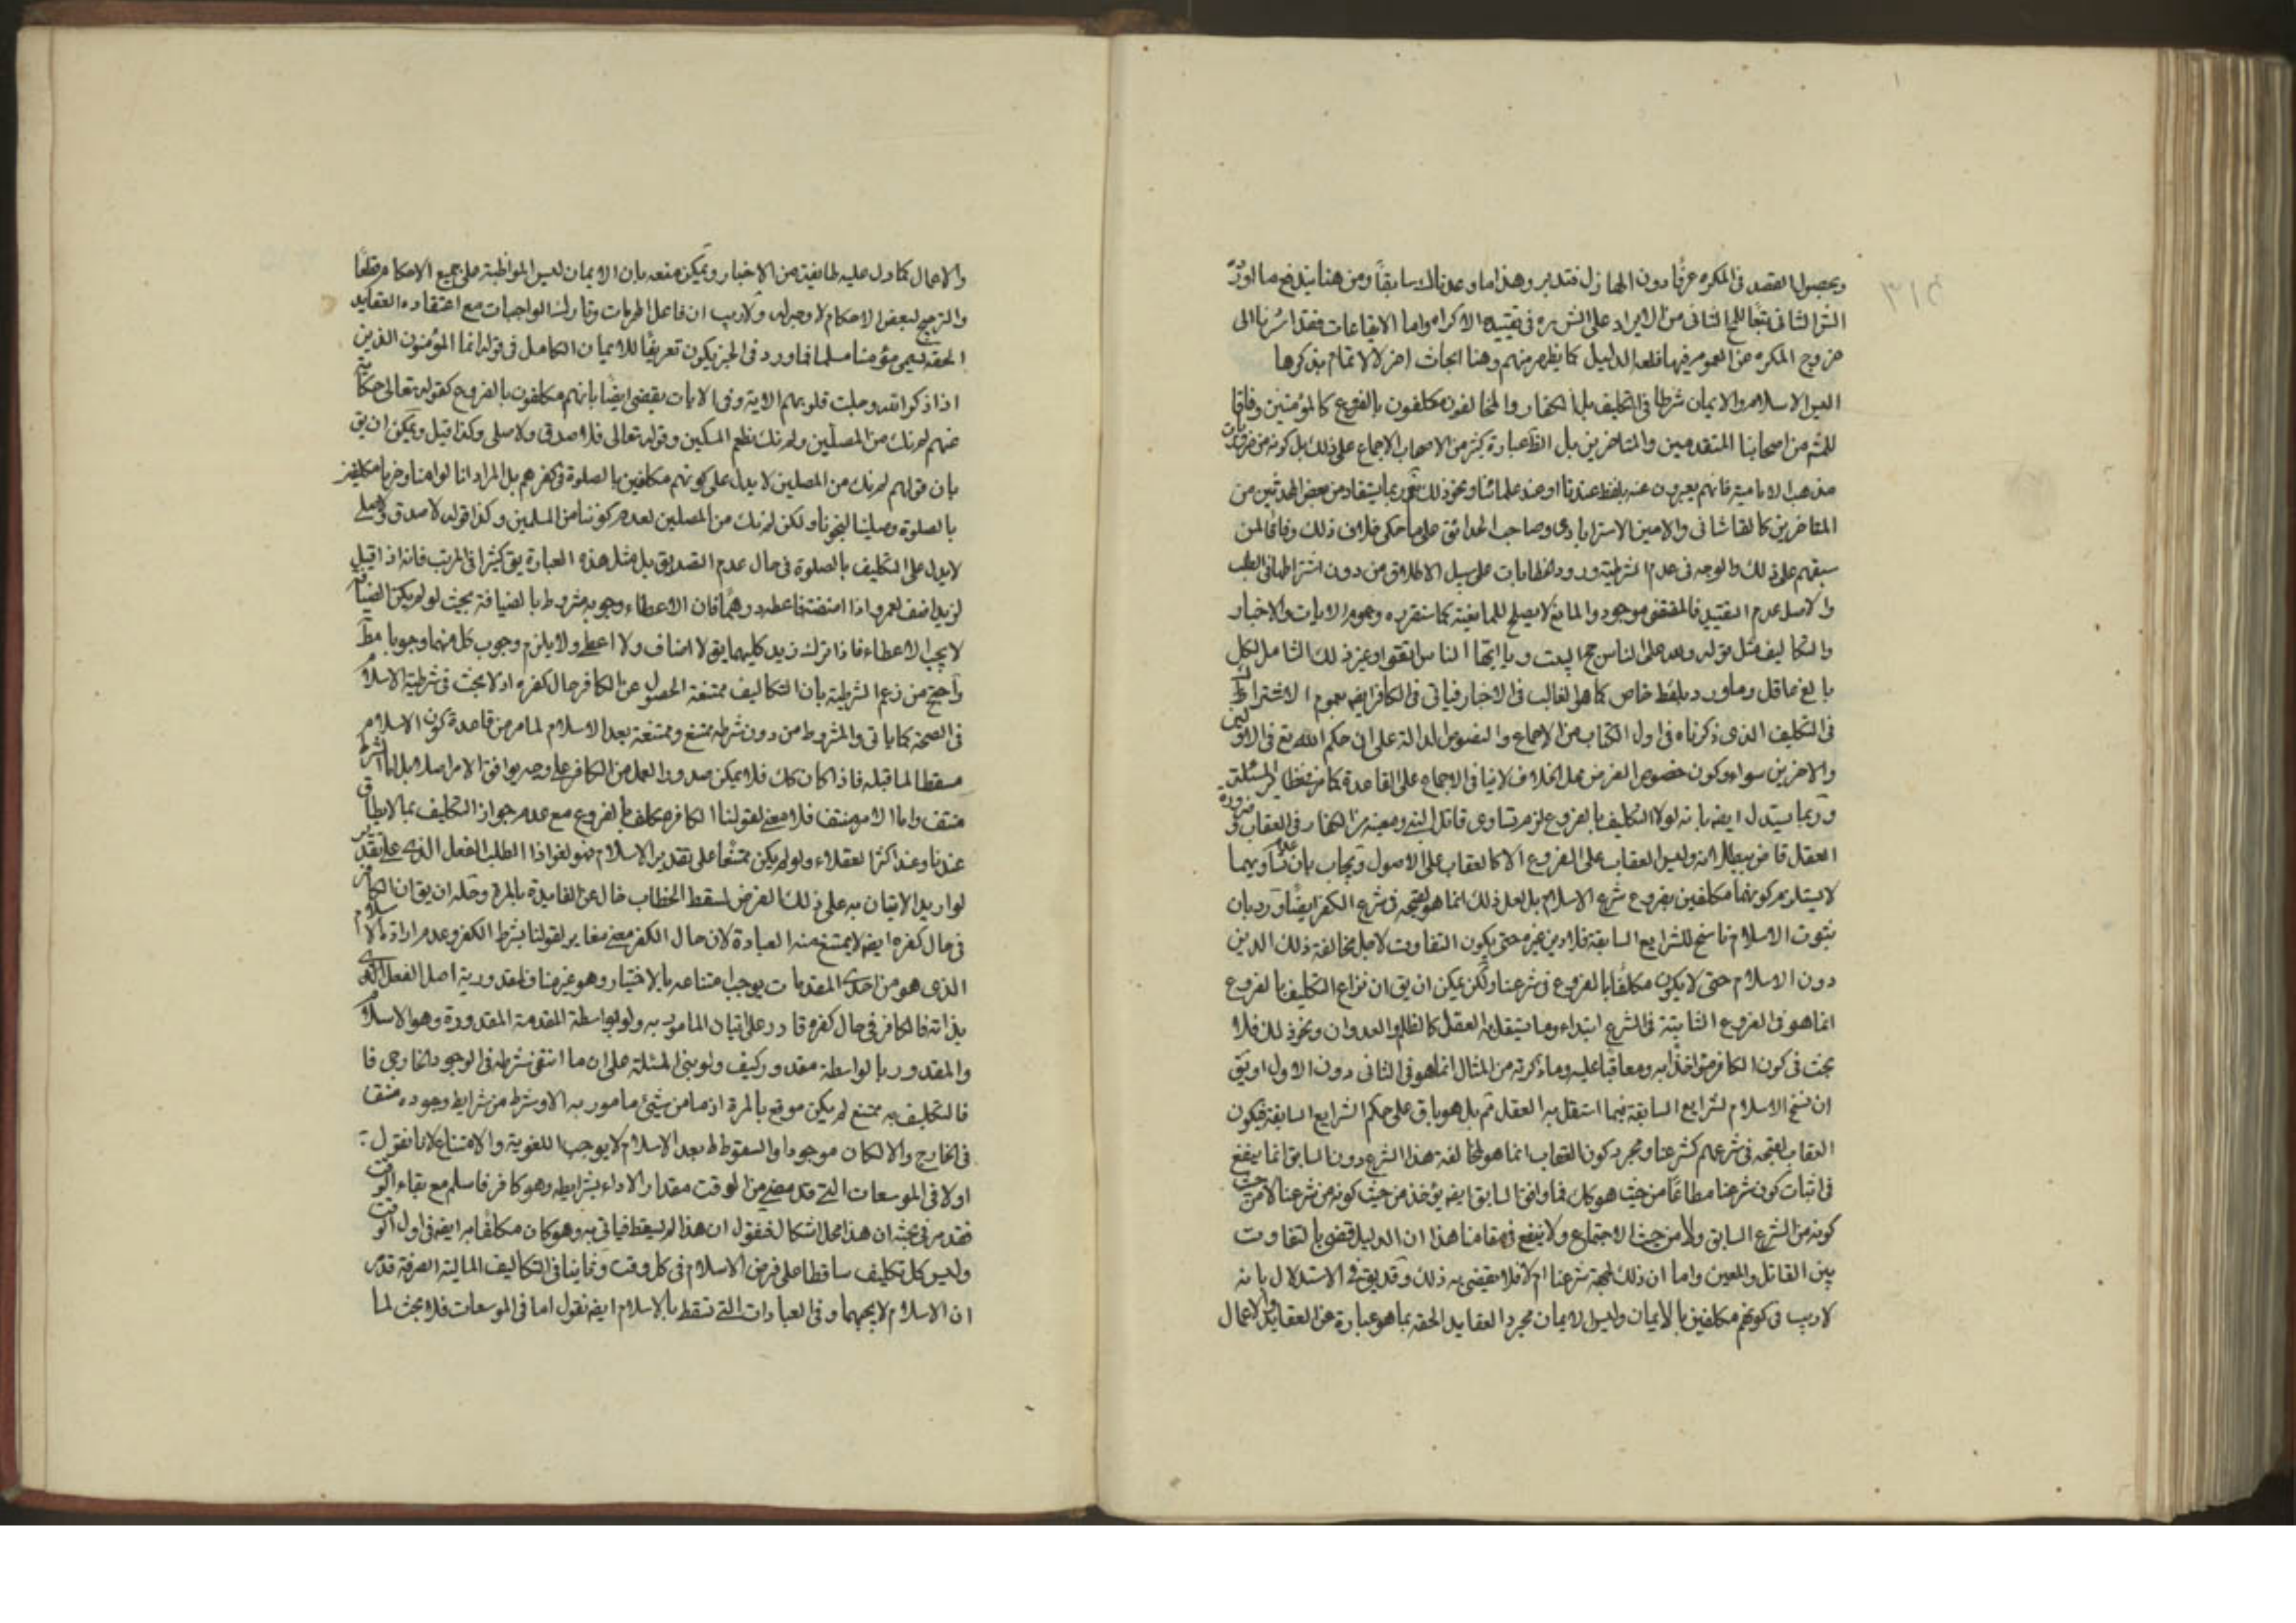 ويحصول القصد في المكره عرفا دون الهازل فتدبر وهذا ما وعدناك سابقا ومن هنا يندفع ما اورده
الش الثاني تبعا للمح الثاني من الايراد على الش ره في تقييده الاكراه واما الايقاعات فقد اشرنا الى
خروج المكره عن العموم فيها فلعه الدليل كما يظهر منهم وهنا ابحاث اخر لا لاتمام بذكرها
ليس الاسلام والايمان شرطا في التكليف بل الكفار والمخالفون مكلفون بالفروع كالمؤمنين وفاقا
للمش من اصحابنا المتقدمين والمتاخرين بل الظ عبارة كثير من الاصحاب الاجماع على ذلك بل كونه من ضروريات
مذهب الامامية فانهم يعبرون عنه بلفظ عندنا او عند علمائنا ونحو ذلك نعم ربما يستفاد من بعض المحدثين من
المتاخرين كالقاشاني والامين الاسترابادي وصاحب الحدائق على ما حكى خلاف ذلك وفاقا لمن
سبقهم على ذلك والوجه في عدم الشرطية ورود الخطابات على سبيل الاطلاق من دون اشتراطها في الطلب
والاصل عدم التقييد فالمقتضى موجود والمانع لا يصلح للمانعية كما ستقرره وعموم الايات والاخبار
والتكاليف مثل قوله ولله على الناس حج البيت ويا ايها الناس اتقوا وغير ذلك الشامل لكل
بالغ عاقل وما ورد بلفظ خاص كما هو الغالب في الاخبار فياتي في الكافر ايضه بعموم الاشتراك
في التكليف الذي ذكرناه في اول الكتاب من الاجماع والنصوص الدالة على ان حكم الله تع في الاولين
والاخرين سواء وكون خصوص الفرض محل الخلاف لا ينافي الاجماع على القاعدة كما في نظاير المسئلة
وربما يستدل ايضه بانه لولا التكليف بالفروع لزم تساوى قاتل النبي ومعينه من الكفار في العقاب وضرورة
العقل قاض ببطلانه وليس العقاب على الفروع الا كالعقاب على الاصول ويجاب بان عدم تساويهما
لا يستلزم كونهما مكلفين بفروع شرع الاسلام بل لعل ذلك انما هو لقبحه في شرع الكفر ايضا ورد بان
ثبوت الاسلام ناسخ للشرايع السابقة فلا دين غيره حتى يكون التفاوت لاجل مخالفة ذلك الدين
دون الاسلام حتى لا يكون مكلفا بالفروع في شرعنا ولكن يمكن ان يق ان نزاع التكليف بالفروع
انما هو في الفروع الثابتة في الشرع ابتداء وما يستقل به العقل كالظلم والعدوان ونحو ذلك فلا
بحث في كون الكافر مؤاخذا به ومعاقبا عليه وما ذكرته من المثال انما هو في الثاني دون الاول او يق
ان نسخ الاسلام لشرايع السابقة فيما استقل به العقل مم بل هو باق على حكم الشرايع السابقة فيكون
العقاب لقبحه في شرعهم كشرعنا ومجرد كون العقاب انما هو لمخالفة هذا الشرع دون السابق انما ينفع
في اثبات كون شرعنا مطاعا من حيث هو كك فما وافق السابق ايضه يؤخذ من حيث كونه من شرعنا لا من حيث
كونه من الشرع السابق ولا من حيث الاجتماع ولا ينفع في مقامنا هذا ان الدليل قضى بالتفاوت
بين القاتل والمعين واما ان ذلك لجهة شرعنا ام لا فلا يقضى به ذلك وقد يق في الاستدلال بانه
لا ريب في كونهم مكلفين بالايمان وليس الايمان مجرد العقايد الحقه بما هو عبارة عن العقايد والاعمال
والاعمال كما دل عليه طايفة من الاخبار ويمكن منعه بان الايمان ليس المواظبة على جميع الاحكام قطعا
والترجيح لبعض الاحكام لا وجه له ولا ريب ان فاعل المحرمات وتارك الواجبات مع اعتقاده العقايد
الحقه يسمى مؤمنا مسلما فما ورد في الخبر يكون تعريفا للايمان الكامل في قوله انما المؤمنون الذين
اذا ذكر الله وجلت قلوبهم الاية وفي الايات يقضى ايضا بانهم مكلفون بالفروع كقوله تعالى حكاية
عنهم لم نك من المصلين ولم نك نطعم المسكين وقوله تعالى فلا صدق ولا صلى وكذا قيل ويمكن ان يق
بان قولهم لم نك من المصلين لا يدل على كونهم مكلفين بالصلوة في كفرهم بل المراد انا لو امنا وصرنا مكلفين
بالصلوة وصلينا لنجونا ولكن لم نك من المصلين لعدم كوننا من المسلمين وكذا قوله لا صدق ولا صلى
لا يدل على التكليف بالصلوة في حال عدم التصديق بل مثل هذه العبارة يق كثيرا في المرتب فانه اذا قيل
لزيد اضف لعمرو اذا اضفته فاعطه درهما فان الاعطاء وجوبه مشروط بالضيافة بحيث لو لم يكن الضيافة
لا يجب الاعطاء فاذا ترك زيد كليهما يق لا اضاف ولا اعطى ولا يلزم وجوب كل منهما وجوبا مط
واحتج من زعم الشرطية بان التكاليف ممتنعة الحصول عن الكافر حال كفره اذ لا بحث في شرطية الاسلام
في الصحة كما ياتي والمشروط من دون شرطه ممتنع وممتنعة بعد الاسلام لما مر من قاعدة كون الاسلام
مسقطا لما قبله فاذا كان كك فلا يمكن صدور العمل من الكافر على وجه يوافق الامر اصلا بل اما الشرط
منتف واما الامر منتف فلا معنى لقولنا الكافر مكلف بالفروع مع عدم جواز التكليف بما لا يطاق
عندنا وعند اكثر العقلاء ولو لم يكن ممتنعا على تقدير الاسلام فهو لغو اذا الطلب الفعل الذي على تقدير
لو اريد الاتيان به على ذلك الفرض لسقط الخطاب خال عن الفايدة بالمرة وحله ان يق ان الكافر
في حال كفره ايضه لا يمتنع منه العبادة لان حال الكفر معنى مغاير لقولنا بشرط الكفر وعدم ارادة الاسلام
الذي هو من احدى المقدمات يوجب امتناعه بالاختيار وهو غير مناف لمقدورية اصل الفعل الذي
بذاته فالكافر في حال كفره قادر على اتيان المامور به ولو بواسطة المقدمة المقدورة وهو الاسلام
والمقدور بالواسطة مقدور كيف ولو بنى المسئلة على ان ما انتفى شرطه في الوجود الخارجي فا
فالتكليف به ممتنع لم يكن موقع بالمرة اذ ما من شيئ مامور به الا وشرط من شرايط وجوده منتف
في الخارج والا لكان موجودا والسقوط بعد الاسلام لا يوجب اللغوية والامتناع لانا نقول
اولا في الموسعات التي قد مضى من الوقت مقدار الاداء بشرايطه وهو كافر فاسلم مع بقاء الوقت
فقد مر في بحثه ان هذا محل اشكال فنقول ان هذا لم يسقط فياتي به وهو كان مكلفا به ايضه في اول الوقت
وليس كل تكليف ساقطا على فرض الاسلام في كل وقت وثانيا في التكاليف المالية الصرفة قد مر
ان الاسلام لا يجبها وفي العبادات التي تسقط بالاسلام ايضه نقول اما في الموسعات فلا بحث لما